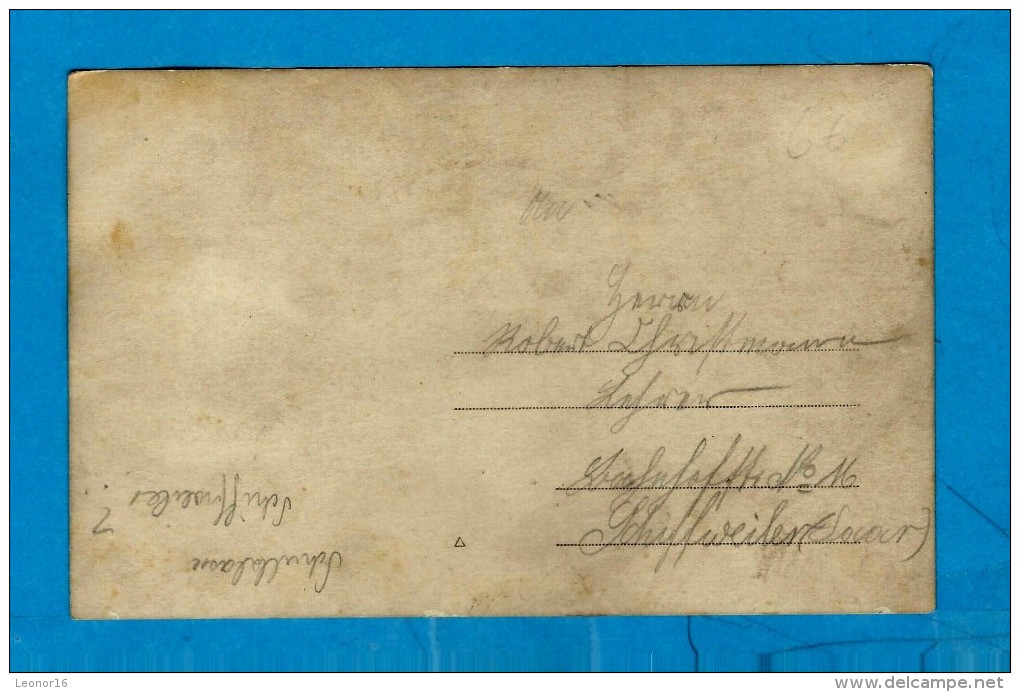 Herrn
Robert Christmann
Lehrer
Bahnhofstr. No
Schiffweiler (Saar)
Schulklasse
Schiffweiler
?
Leonor16
www.delcampe.net